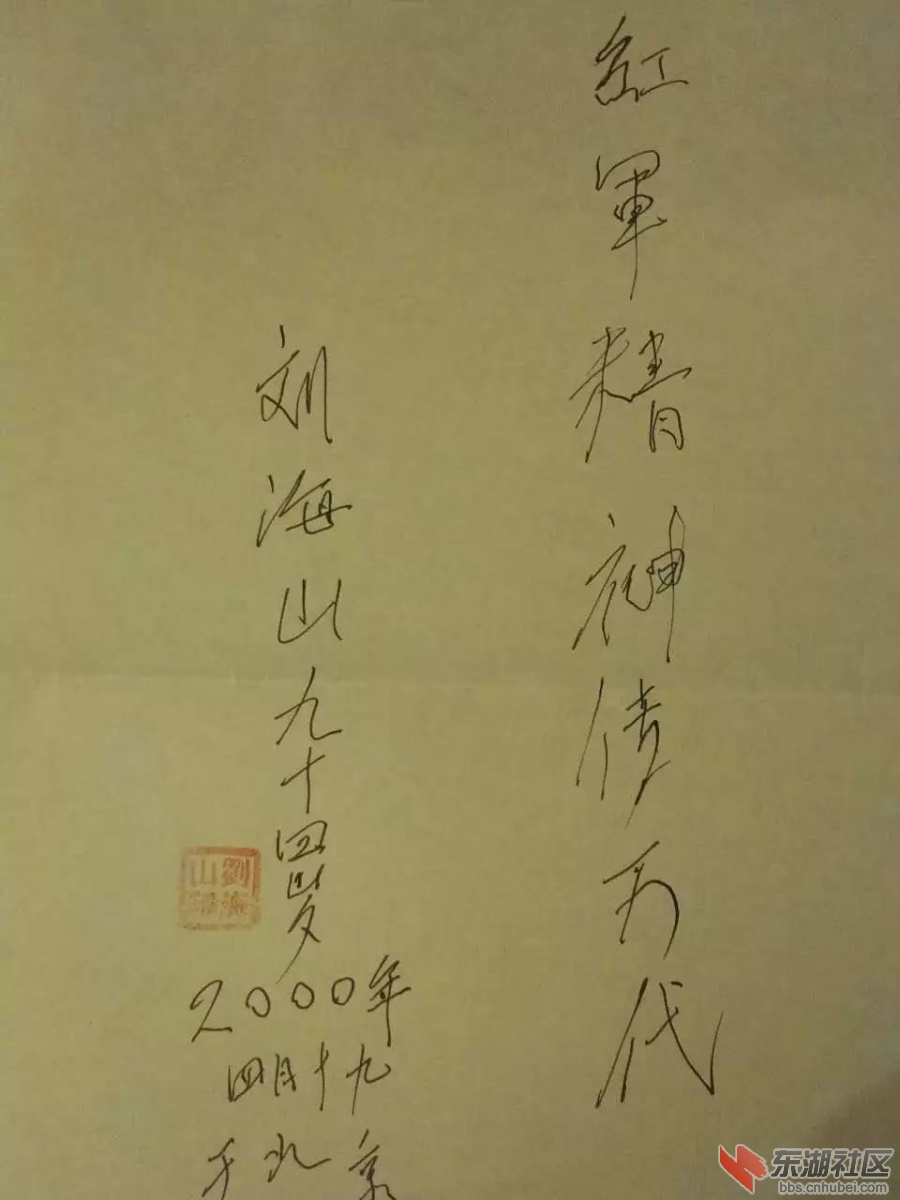 紅軍精神传万代
刘海山九十四岁
2000年
四月十九
于北京
劉海山
东湖社区
bbs.cnhubei.com